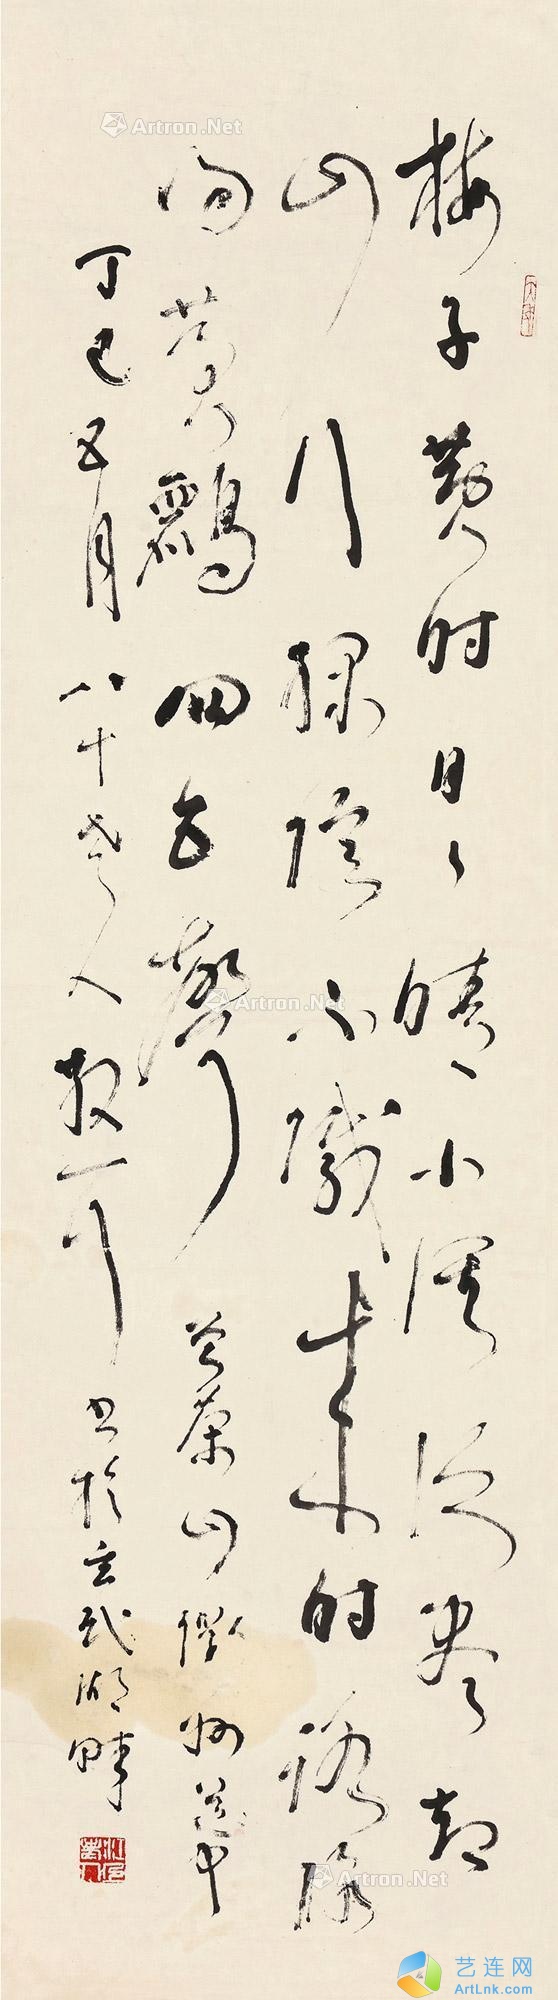 梅子黄时日々晴小溪泛尽却
山行绿阴不减来时路添
得黄鸝四五聲 曾茶山衢州道中
丁巳五月八十老人散耳书於玄武湖畔
Artron.Net
Artron.Net
Artron.Net
Artron.Net
艺连网
ArtLnk.com